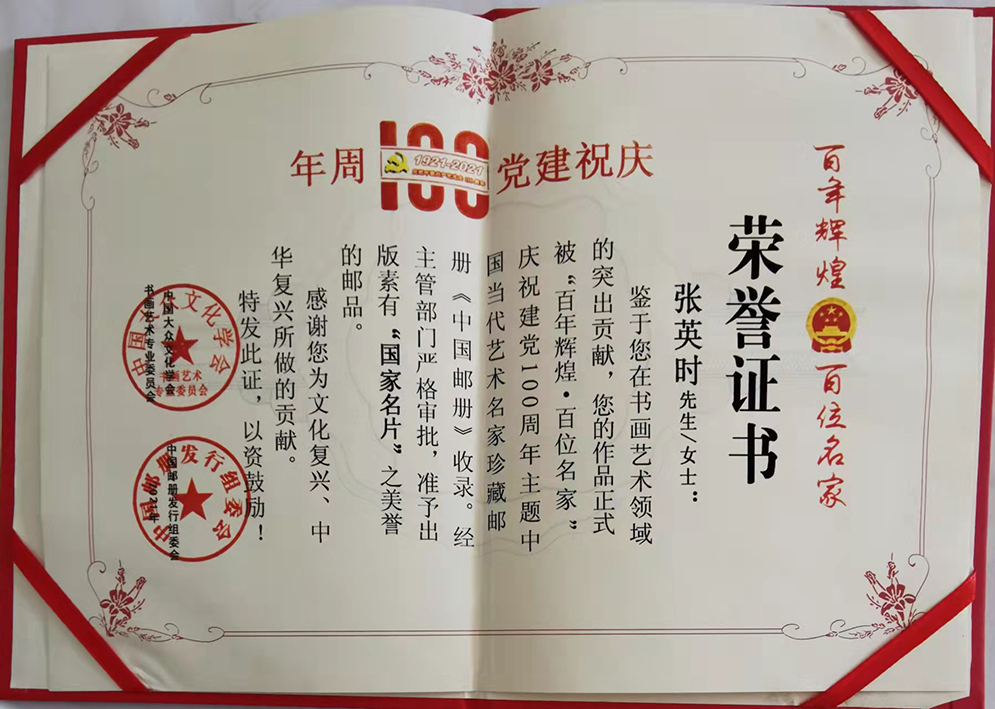 庆祝建党100周年
1921-2021
百年辉煌 百位名家
荣誉证书
张英时先生/女士：
鉴于您在书画艺术领域
的突出贡献，您的作品正式
被“百年辉煌·百位名家”
庆祝建党100周年主题中
国当代艺术名家珍藏邮
册《中国邮册》收录。经
主管部门严格审批，准予出
版素有“国家名片”之美誉
的邮品。
感谢您为文化复兴、中
华复兴所做的贡献。
特发此证，以资鼓励！
中国大众文化学会
书画艺术专业委员会
中国大众文化学会
书画艺术
专业委员会
中国邮册发行组委会
2021年
中国邮册发行组委会